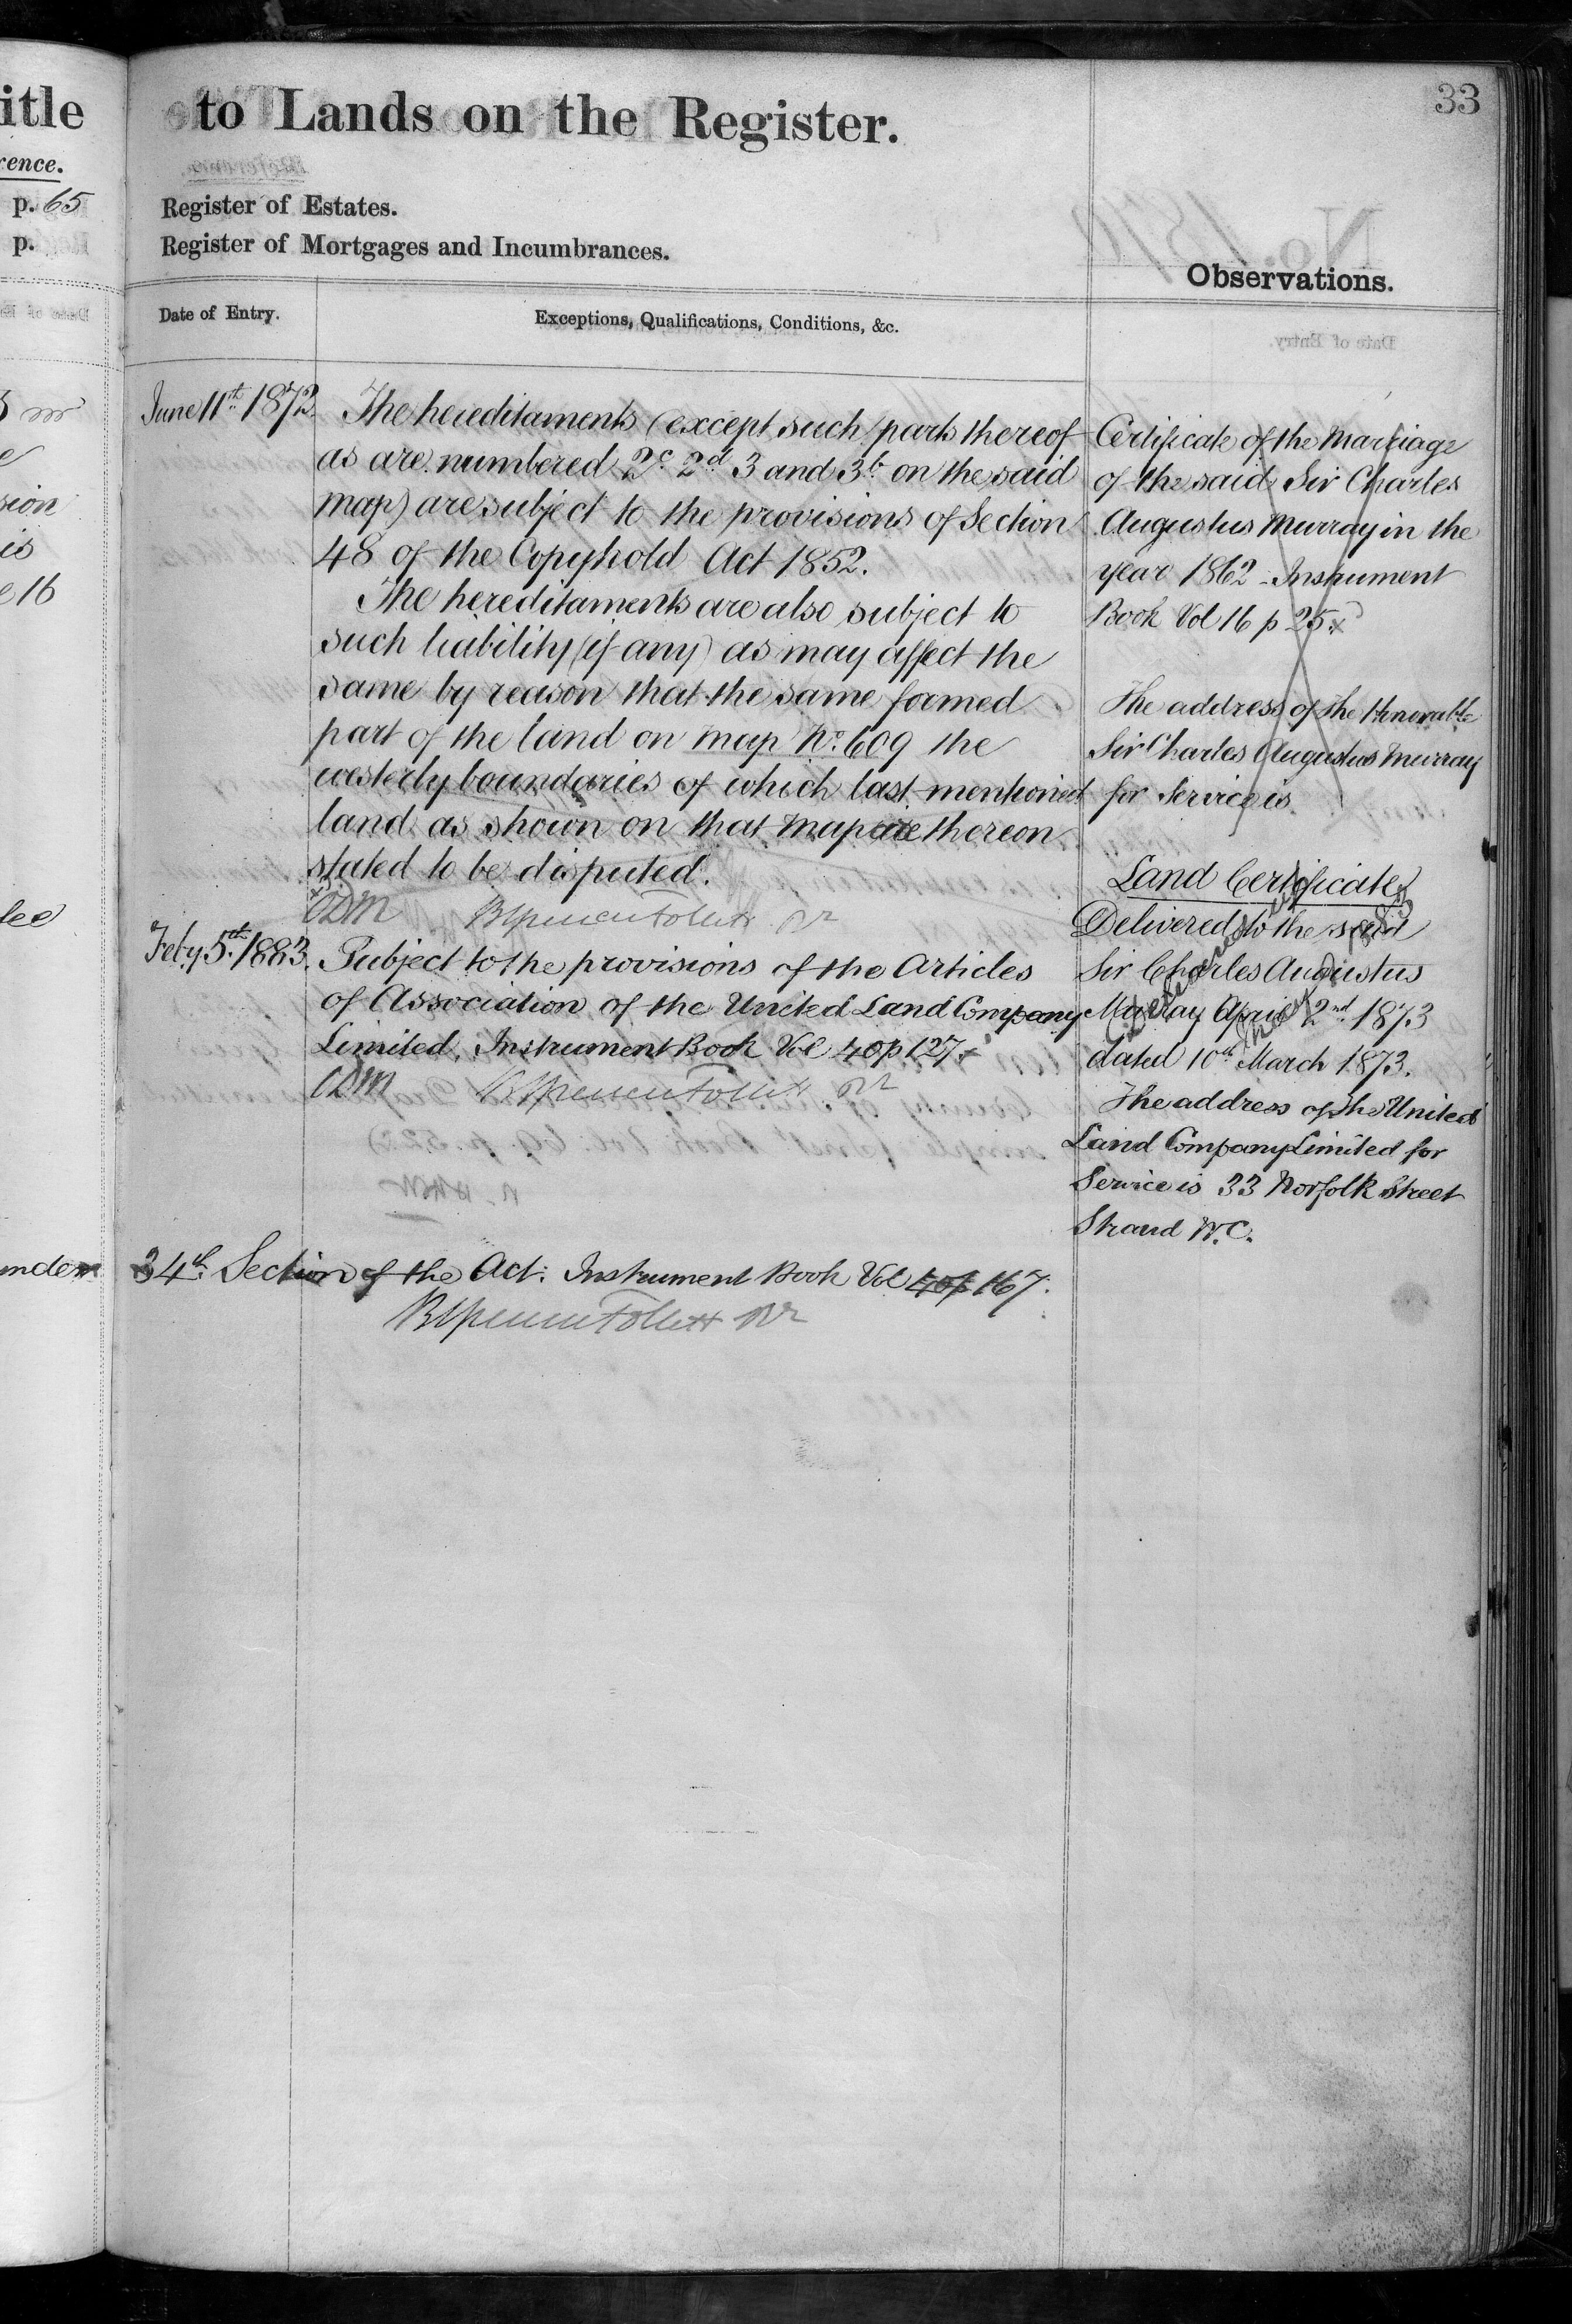 itle
rence.
p. 65
p.
sion
is
e 16
lee
to Lands on the Register.
33
Register of Estates.
Register of Mortgages and Incumbrances.
Observations.
Date of Entry.
Exceptions, Qualifications, Conditions, &c.
June 11th 1872.
The hereditaments (except such parts thereof
as are numbered 2c 2d 3 and 3b on the said
map) are subject to the provisions of Section
48 of the Copyhold Act 1852.
The hereditaments are also subject to
such liability (if any) as may affect the
same by reason that the same formed
part of the land on map No. 609 the
westerly boundaries of which last mentioned
land as shown on that map are thereon
stated to be disputed.
ODM
Feby 5th 1883.
Subject to the provisions of the Articles
of Association of the United Land Company
Limited. Instrument Book Vol 40 p 127.
ODM
34th Section of the Act. Instrument Book Vol 40 p 167.
Certificate of the Marriage
of the said Sir Charles
Augustus Murray in the
year 1862 - Instrument
Book Vol 16 p 25.
The address of the Honorable
Sir Charles Augustus Murray
for Service is
Land Certificate
Delivered to the said
Sir Charles Augustus
Murray April 2nd 1873
dated 10th March 1873.
The address of the United
Land Company Limited for
Service is 33 Norfolk Street
Strand W.C.